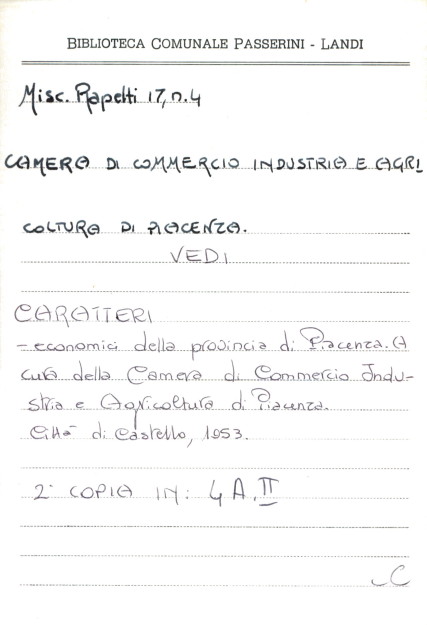 BIBLIOTECA COMUNALE PASSERINI - LANDI
Misc. Rapetti 17, n. 4
CAMERA DI COMMERCIO INDUSTRIA E AGRI
COLTURA DI PIACENZA.
VEDI
CARATTERI
- economici della provincia di Piacenza. A
cura della Camera di Commercio Indu-
stria e Agricoltura di Piacenza.
Città di Castello, 1953.
2ª COPIA IN: 4 A. II